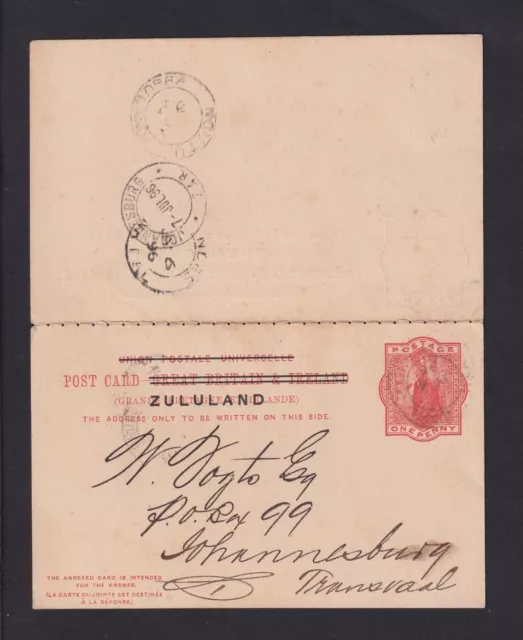 JOHANNESBURG
Z.A.R.
7 JUL 96
UNION POSTALE UNIVERSELLE
POST CARD GREAT BRITAIN & IRELAND
(GRANDE BRETAGNE ET IRLANDE)
ZULULAND
THE ADDRESS ONLY TO BE WRITTEN ON THIS SIDE.
POSTAGE
ONE PENNY
W. Vogts Esq
P.O. Box 99
Johannesburg
Transvaal
THE ANNEXED CARD IS INTENDED
FOR THE ANSWER.
(LA CARTE CI-JOINTE EST DESTINÉE
À LA RÉPONSE.)